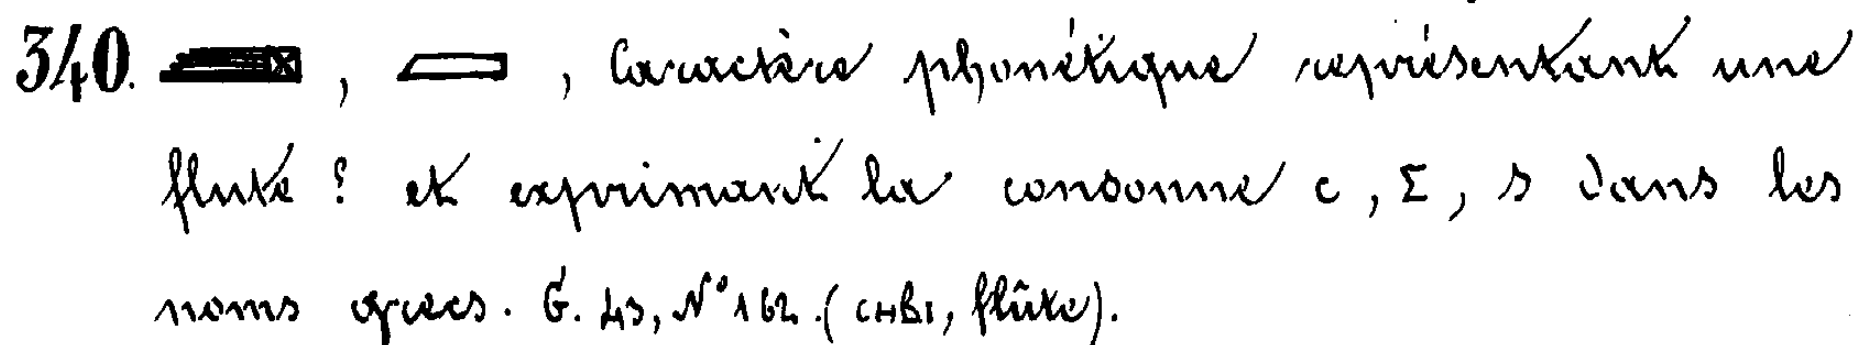 340. 𓐝, 𓐛, Caractère phonétique représentant une
flute ? et exprimant la consonne ⲥ, Σ, s dans les
noms grecs. G. 43, N° 162. (ⲥⲏⲃⲓ, flûte).